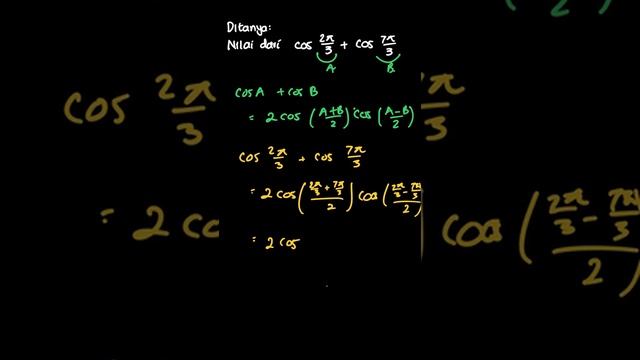 Ditanya:
Nilai dari cos 2π/3 + cos 7π/3
A B
cos A + cos B
= 2 cos (A+B/2) cos (A-B/2)
cos 2π/3 + cos 7π/3
= 2 cos (2π/3 + 7π/3 / 2) cos (2π/3 - 7π/3 / 2)
= 2 cos